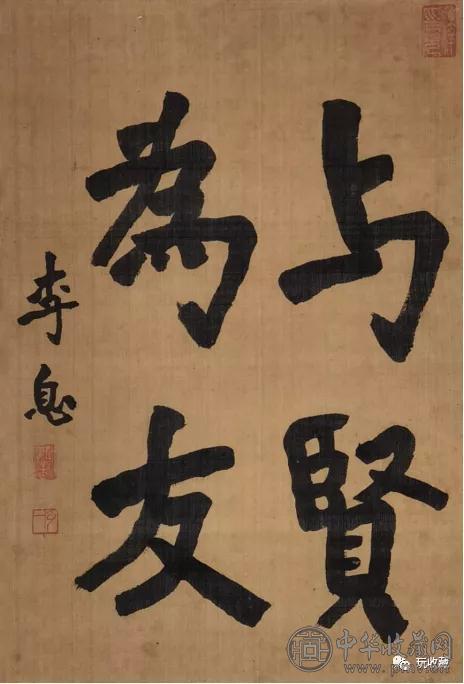 与賢
為友
李息
中华收藏网
玩收藏